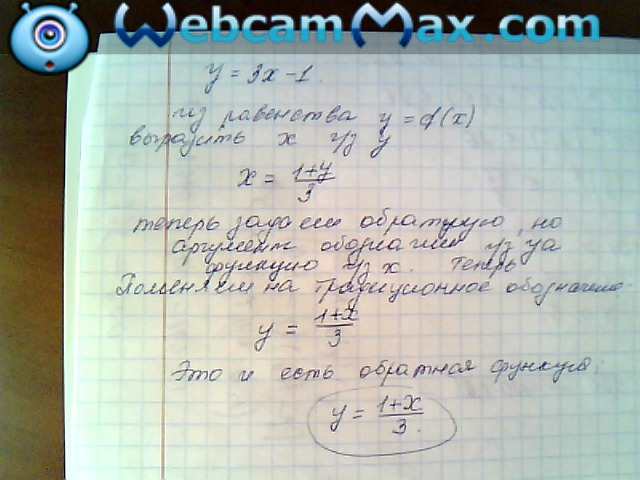 WebcamMax.com
y = 3x - 1.
из равенства y = f(x)
выразить x ч/з y
x = (1+y)/3
теперь зададим обратную, но
аргумент обозначим ч/з y а
функцию ч/з x. теперь
Поменяем на традиционное обозначение
y = (1+x)/3
Это и есть обратная функция:
y = (1+x)/3.